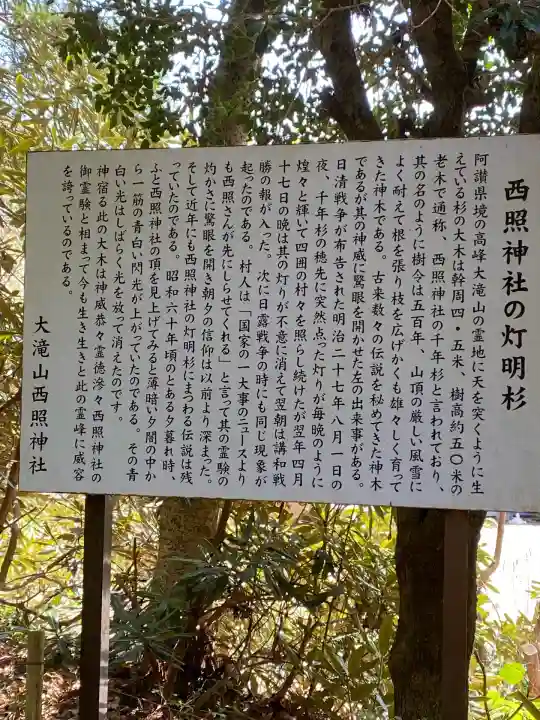 西照神社の灯明杉
阿讃県境の高峰大滝山の霊地に天を突くように生
えている杉の大木は幹周四・五米、樹高約五〇米の
老木で通称、西照神社の千年杉と言われており、
其の名のように樹令は五百年、山頂の厳しい風雪に
よく耐えて根を張り枝を広げかくも雄々しく育って
きた神木である。古来数々の伝説を秘めてきた神木
であるが其の神威に驚眼を開かせた左の出来事がある。
日清戦争が布告された明治二十七年八月一日の
夜、千年杉の穂先に突然点った灯りが毎晩のように
煌々と輝いて四囲の村々を照らし続けたが翌年四月
十七日の晩は其の灯りが不意に消えて翌朝は講和戦
勝の報が入った。次に日露戦争の時にも同じ現象が
起ったのである。村人は「国家の一大事のニュースより
も西照さんが先にしらせてくれる」と言って其の霊験の
灼かさに驚眼を開き朝夕の信仰は以前より深まった。
そして近年にも西照神社の灯明杉にまつわる伝説は残
っていたのである。昭和六十年頃のとある夕暮れ時、
ふと西照神社の頂を見上げてみると薄暗い夕闇の中か
ら一筋の青白い閃光が上がっていたのである。その青
白い光はしばらく光を放って消えたのです。
神宿る此の大木は神威恭々霊徳滲々西照神社の
御霊験と相まって今も生き生きと此の霊峰に威容
を誇っているのである。
大滝山西照神社